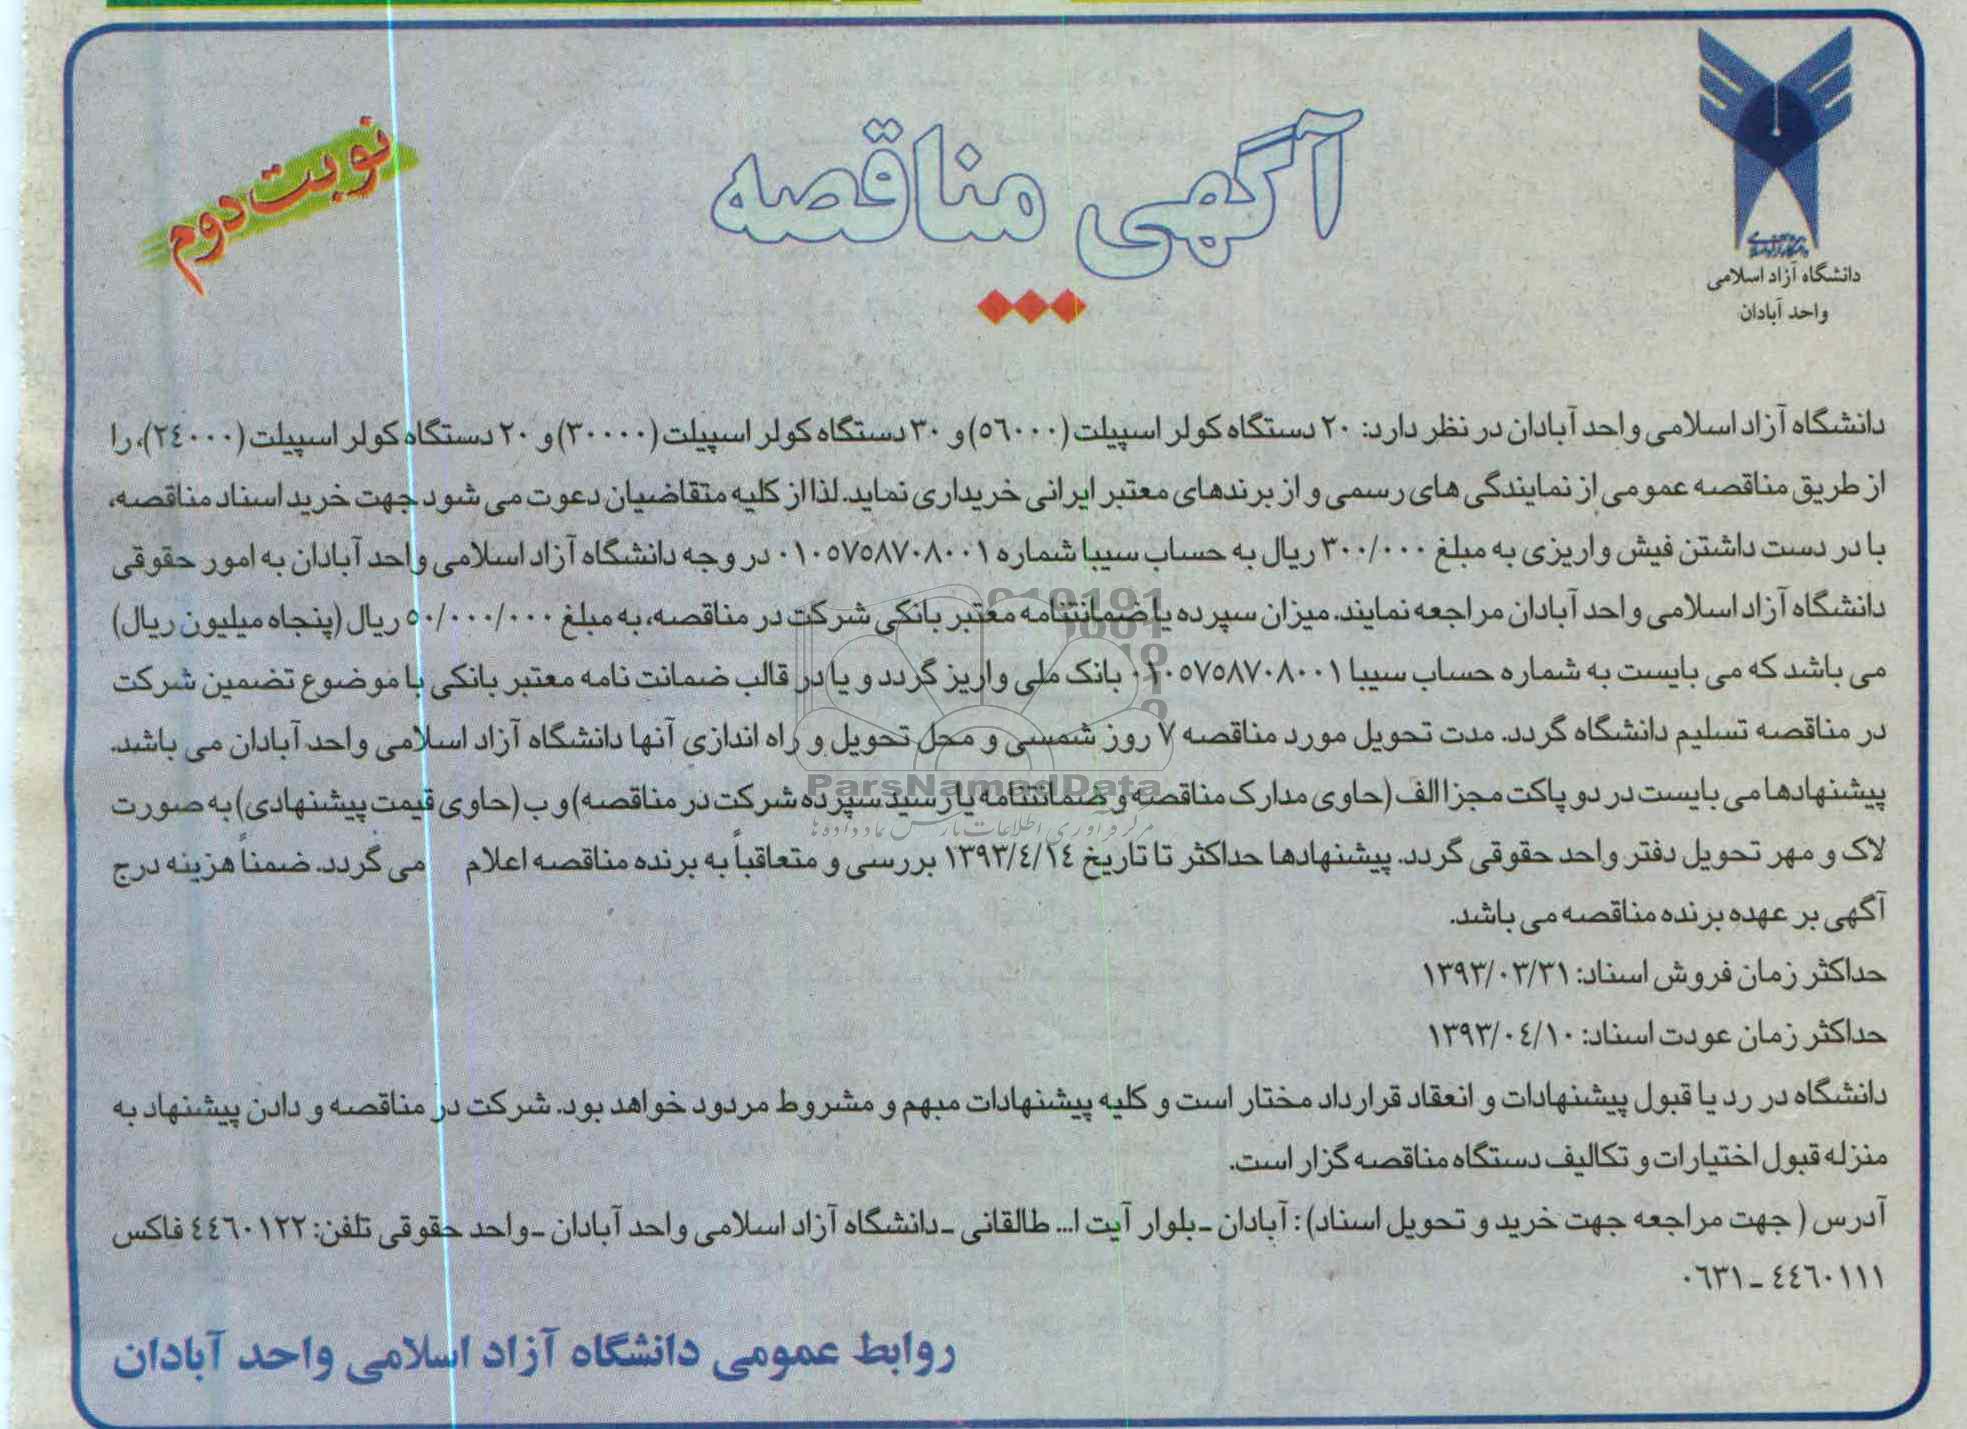 دانشگاه آزاد اسلامی
واحد آبادان
آگهی مناقصه
نوبت دوم
دانشگاه آزاد اسلامی واحد آبادان در نظر دارد: ۲۰ دستگاه کولر اسپیلت (٥٦۰۰۰) و ۳۰ دستگاه کولر اسپیلت (۳۰۰۰۰) و ۲۰ دستگاه کولر اسپیلت (۲٤۰۰۰)، را
از طریق مناقصه عمومی از نمایندگی های رسمی و از برندهای معتبر ایرانی خریداری نماید. لذا از کلیه متقاضیان دعوت می شود جهت خرید اسناد مناقصه،
با در دست داشتن فیش واریزی به مبلغ ۳۰۰/۰۰۰ ریال به حساب سیبا شماره ۰۱۰٥۷٥۸۷۰۸۰۰۱ در وجه دانشگاه آزاد اسلامی واحد آبادان به امور حقوقی
دانشگاه آزاد اسلامی واحد آبادان مراجعه نمایند. میزان سپرده یا ضمانتنامه معتبر بانکی شرکت در مناقصه، به مبلغ ٥۰/۰۰۰/۰۰۰ ریال (پنجاه میلیون ریال)
می باشد که می بایست به شماره حساب سیبا ۰۱۰٥۷٥۸۷۰۸۰۰۱ بانک ملی واریز گردد و یا در قالب ضمانت نامه معتبر بانکی با موضوع تضمین شرکت
در مناقصه تسلیم دانشگاه گردد. مدت تحویل مورد مناقصه ۷ روز شمسی و محل تحویل و راه اندازی آنها دانشگاه آزاد اسلامی واحد آبادان می باشد.
پیشنهادها می بایست در دو پاکت مجزا الف (حاوی مدارک مناقصه و ضمانتنامه یا رسید سپرده شرکت در مناقصه) و ب (حاوی قیمت پیشنهادی) به صورت
لاک و مهر تحویل دفتر واحد حقوقی گردد. پیشنهادها حداکثر تا تاریخ ۱۳۹۳/٤/۱٤ بررسی و متعاقباً به برنده مناقصه اعلام می گردد. ضمناً هزینه درج
آگهی بر عهده برنده مناقصه می باشد.
حداکثر زمان فروش اسناد: ۱۳۹۳/۰۳/۳۱
حداکثر زمان عودت اسناد: ۱۳۹۳/۰٤/۱۰
دانشگاه در رد یا قبول پیشنهادات و انعقاد قرارداد مختار است و کلیه پیشنهادات مبهم و مشروط مردود خواهد بود. شرکت در مناقصه و دادن پیشنهاد به
منزله قبول اختیارات و تکالیف دستگاه مناقصه گزار است.
آدرس ( جهت مراجعه جهت خرید و تحویل اسناد) : آبادان ـ بلوار آیت ا... طالقانی ـ دانشگاه آزاد اسلامی واحد آبادان ـ واحد حقوقی تلفن: ٤٤٦۰۱۲۲ فاکس
٤٤٦۰۱۱۱ ـ ۰٦۳۱
روابط عمومی دانشگاه آزاد اسلامی واحد آبادان
ParsNamadData
مرکز فرآوری اطلاعات پارس نماد داده ها